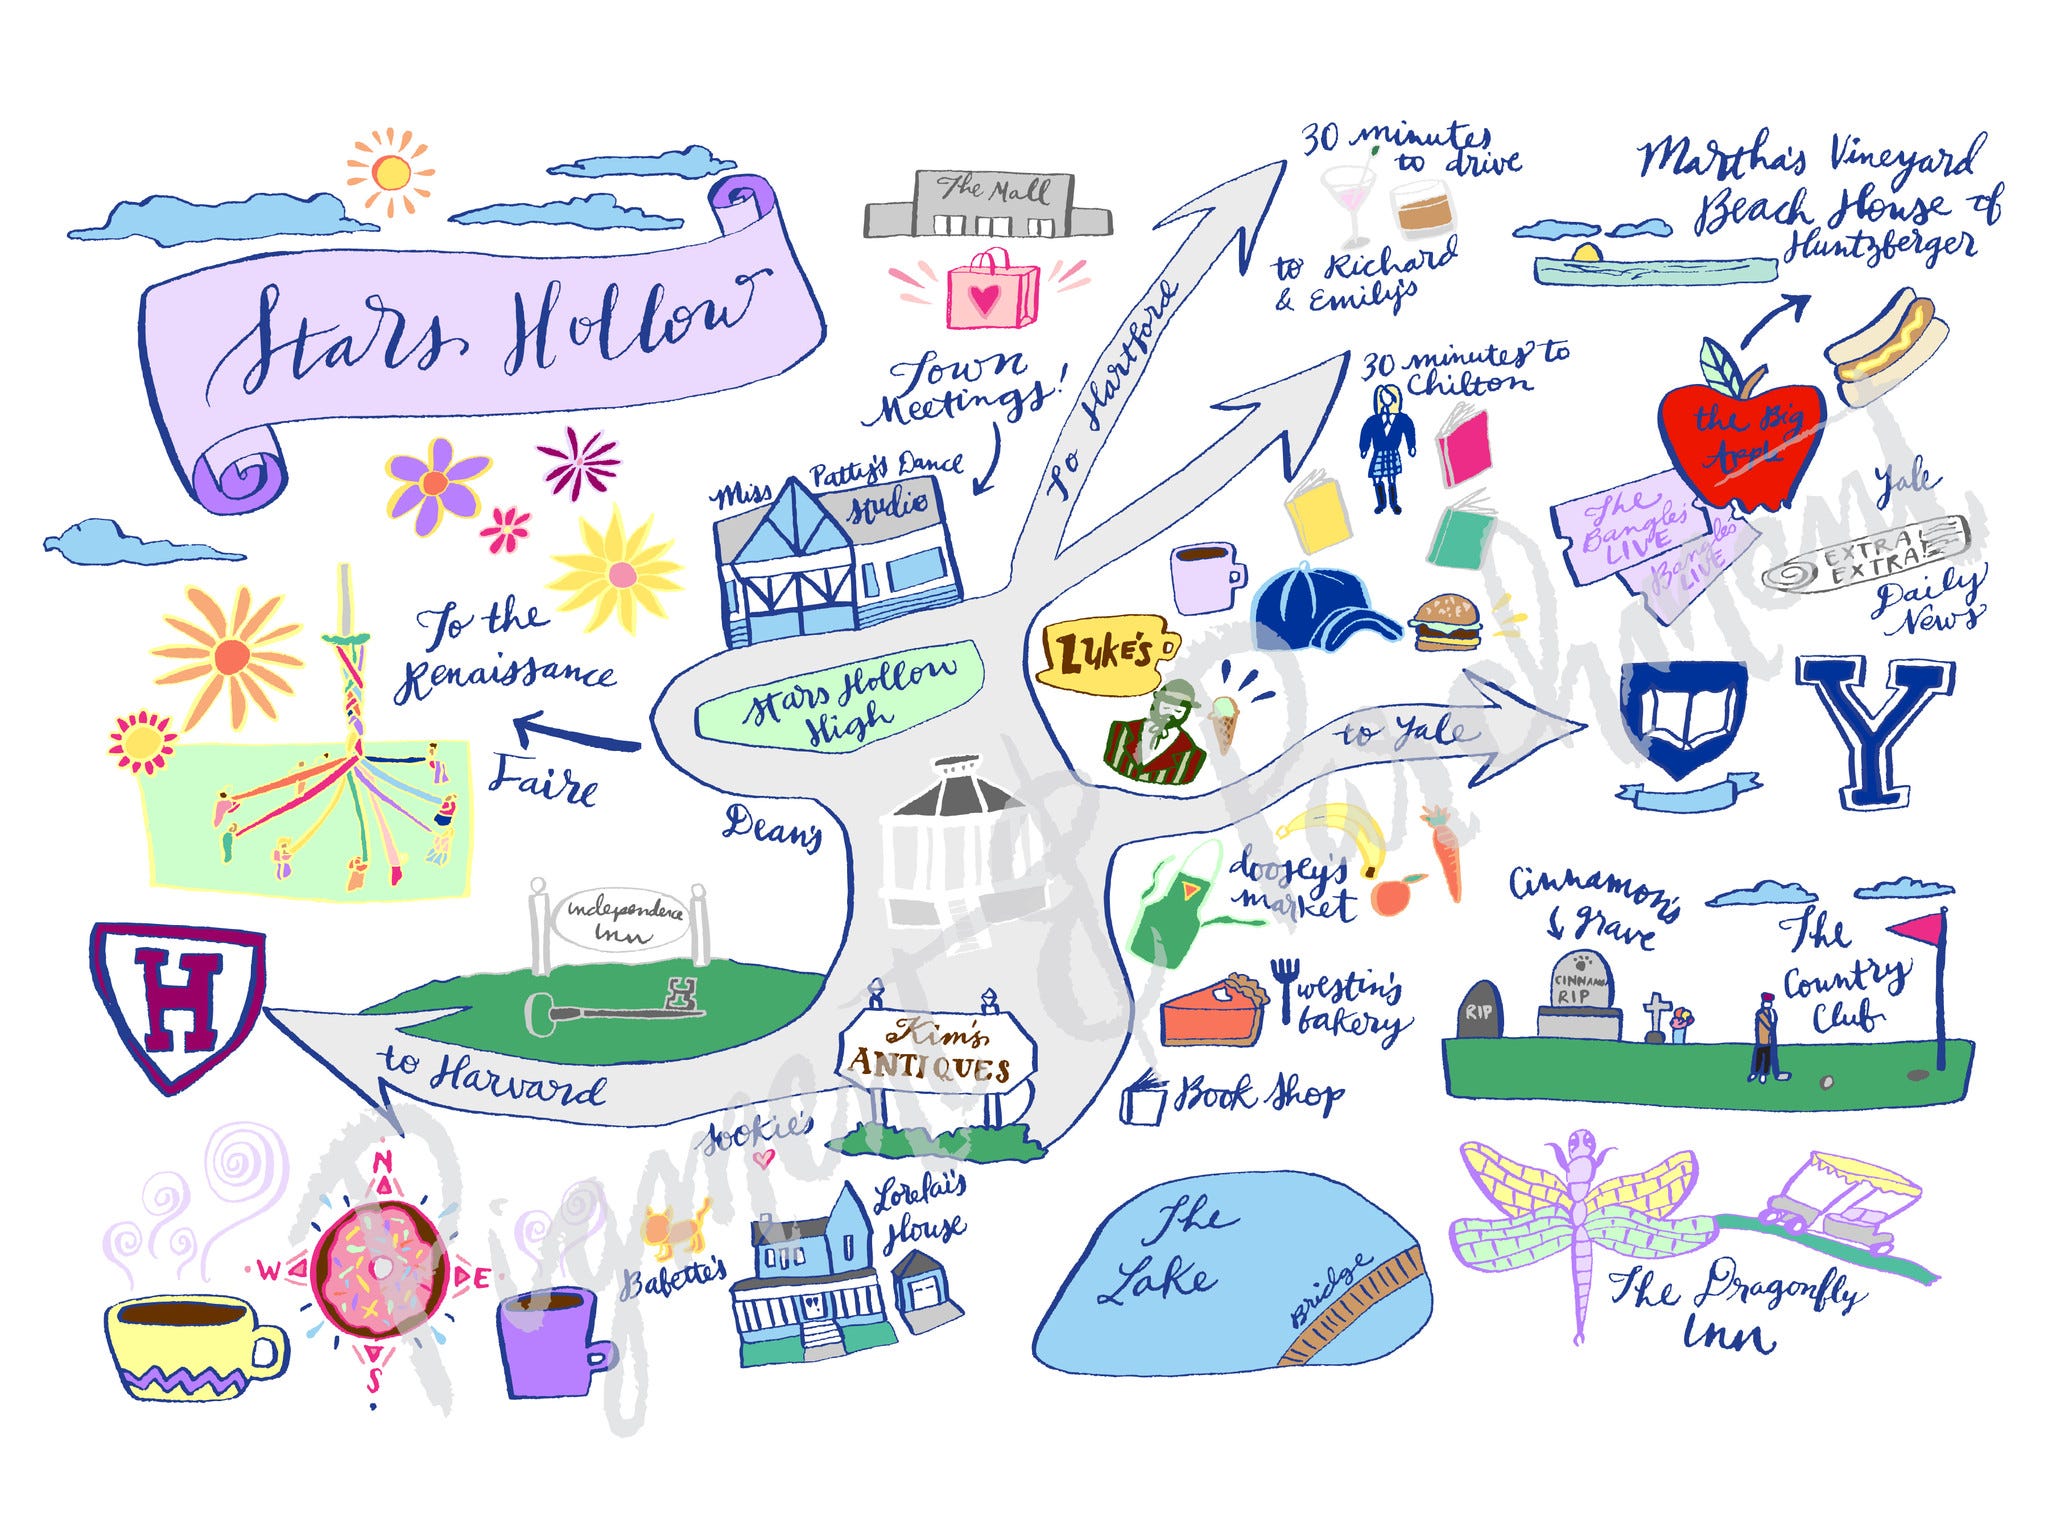 Stars Hollow
The Mall
Town
Meetings!
Miss Patty's Dance
Studio
To Hartford
30 minutes
to drive
to Richard
& Emily's
30 minutes to
Chilton
Martha's Vineyard
Beach House of
Huntzberger
the Big
Apple
The
Bangles
LIVE
Bangles
LIVE
Yale
EXTRA!
EXTRA!
Daily
News
To the
Renaissance
Faire
Stars Hollow
High
LUKE'S
to Yale
Y
Dean's
independence
inn
H
H
to Harvard
Kim's
ANTIQUES
doosey's
market
westin's
bakery
Book Shop
Cinnamon's
grave
RIP
CINNAMON
RIP
The
Country
Club
Sookie's
Babette's
Lorelai's
House
N
W
E
S
The
Lake
Bridge
The Dragonfly
Inn
Pigment & Parchment